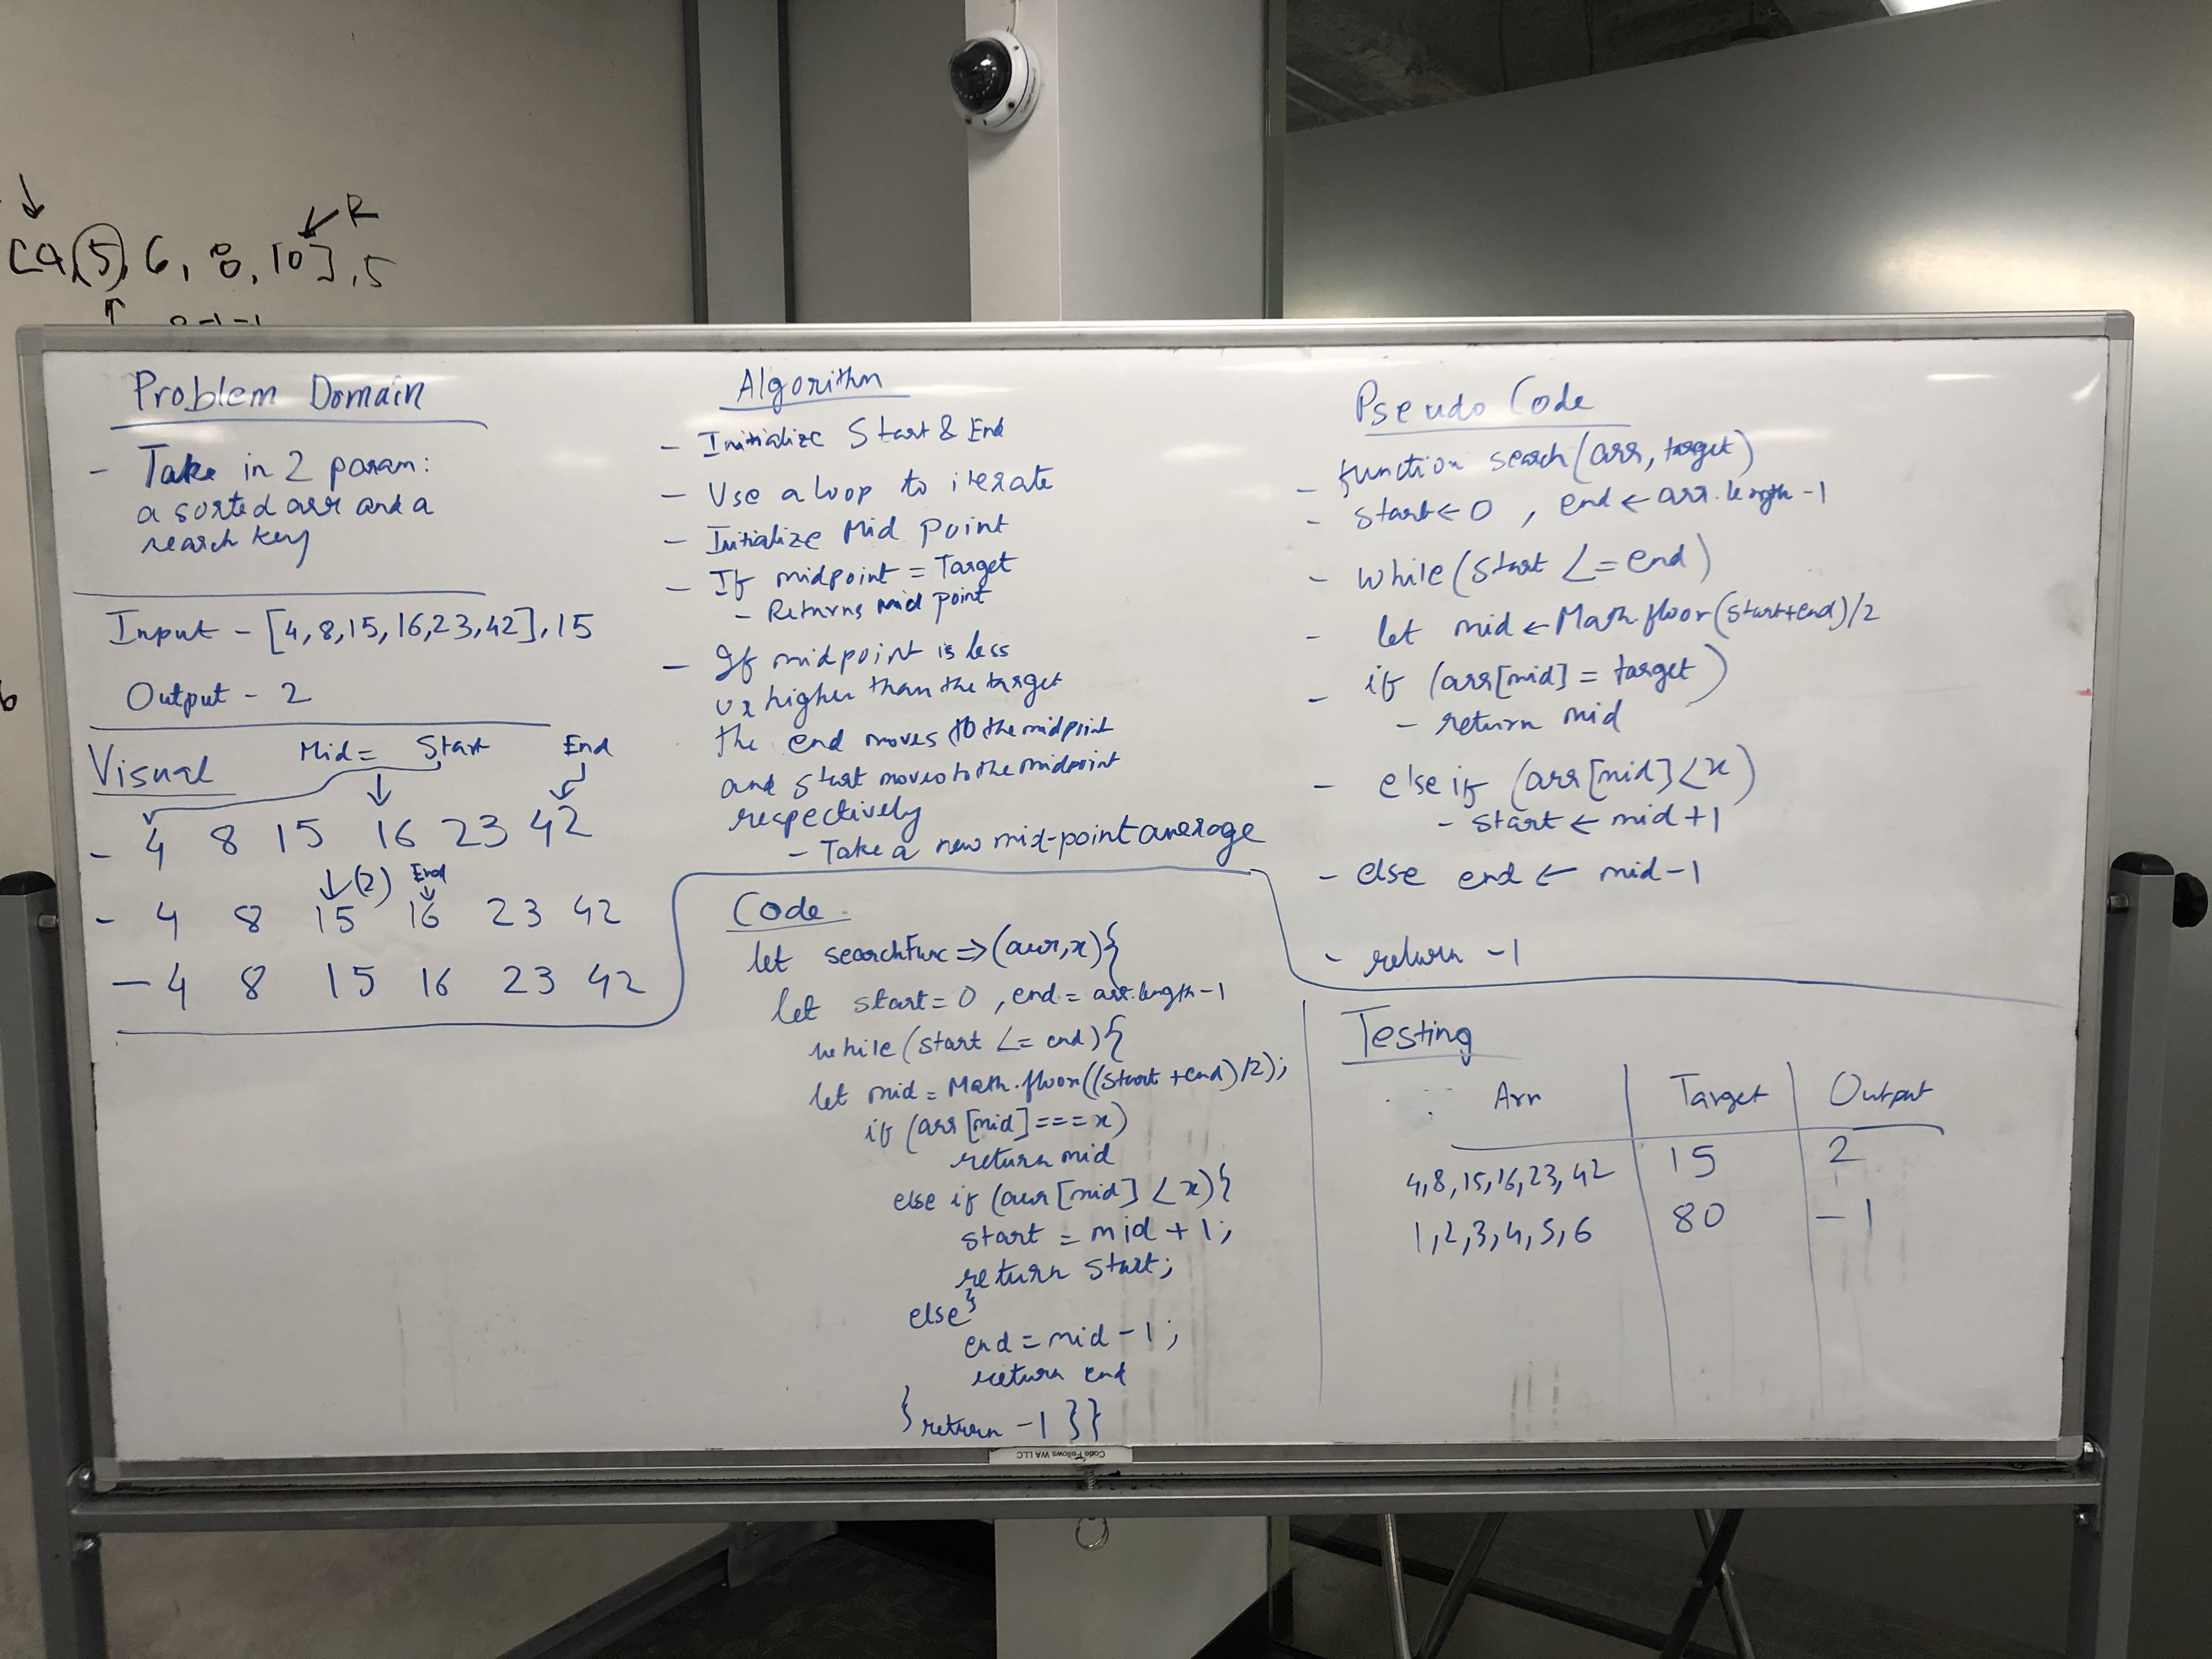 R
[4, 5, 6, 8, 10], 5
Problem Domain
- Take in 2 param:
a sorted arr and a
search key
Input - [4, 8, 15, 16, 23, 42], 15
Output - 2
Visual
Mid = Start End
- 4 8 15 16 23 42
(2) End
- 4 8 15 16 23 42
- 4 8 15 16 23 42
Algorithm
- Initialize Start & End
- Use a loop to iterate
- Initialize Mid Point
- If midpoint = Target
- Returns mid point
- If midpoint is less
or higher than the target
the end moves to the midpoint
and start moves to the midpoint
respectively
- Take a new mid-point average
Code
let searchFunc => (arr, x) {
let start = 0, end = arr.length - 1
while (start <= end) {
let mid = Math.floor((start + end) / 2);
if (arr[mid] === x)
return mid
else if (arr[mid] < x) {
start = mid + 1;
return start;
else }
end = mid - 1;
return end
} return -1 } }
Pseudo Code
- function search (arr, target)
- start ← 0, end ← arr.length - 1
- while (start <= end)
- let mid ← Math.floor (start + end) / 2
- if (arr[mid] = target)
- return mid
- else if (arr[mid] < x)
- start ← mid + 1
- else end ← mid - 1
- return -1
Testing
Arr Target Output
4, 8, 15, 16, 23, 42 15 2
1, 2, 3, 4, 5, 6 80 -1
Code Fellows WA LLC